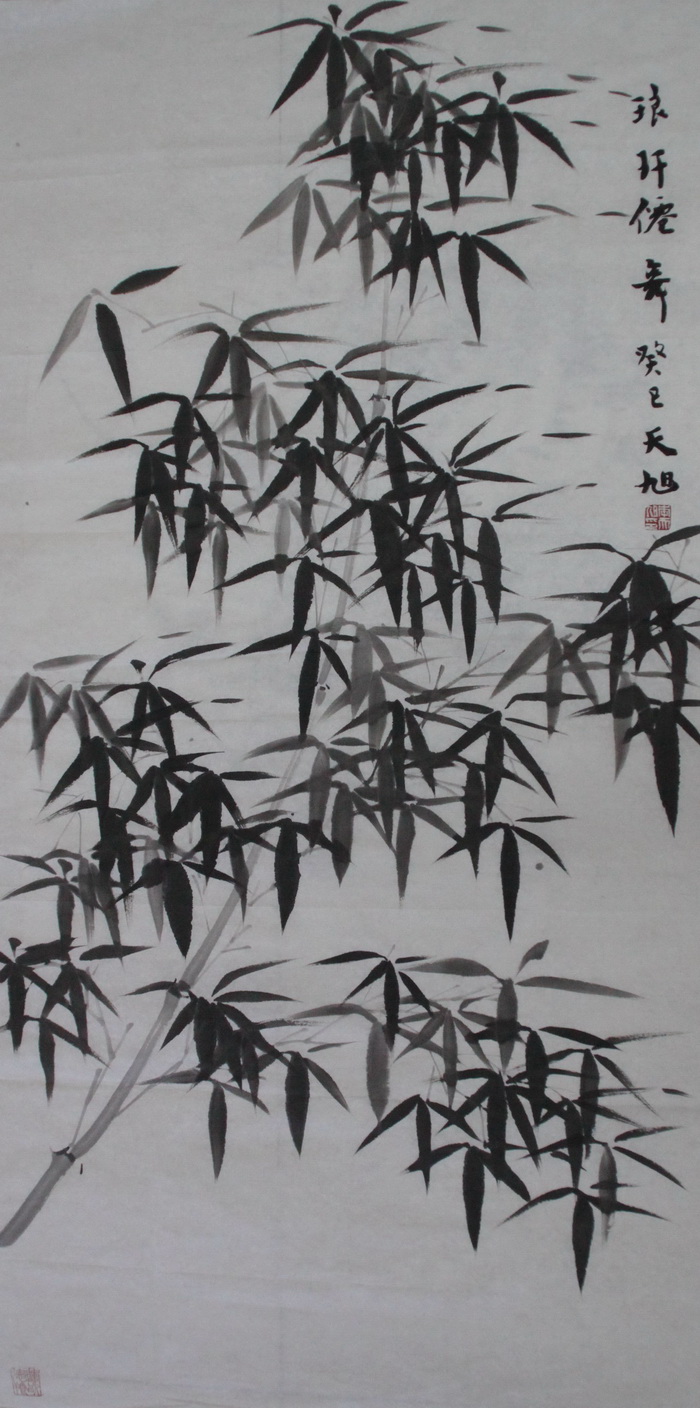 琅玕僊舞癸巳天旭